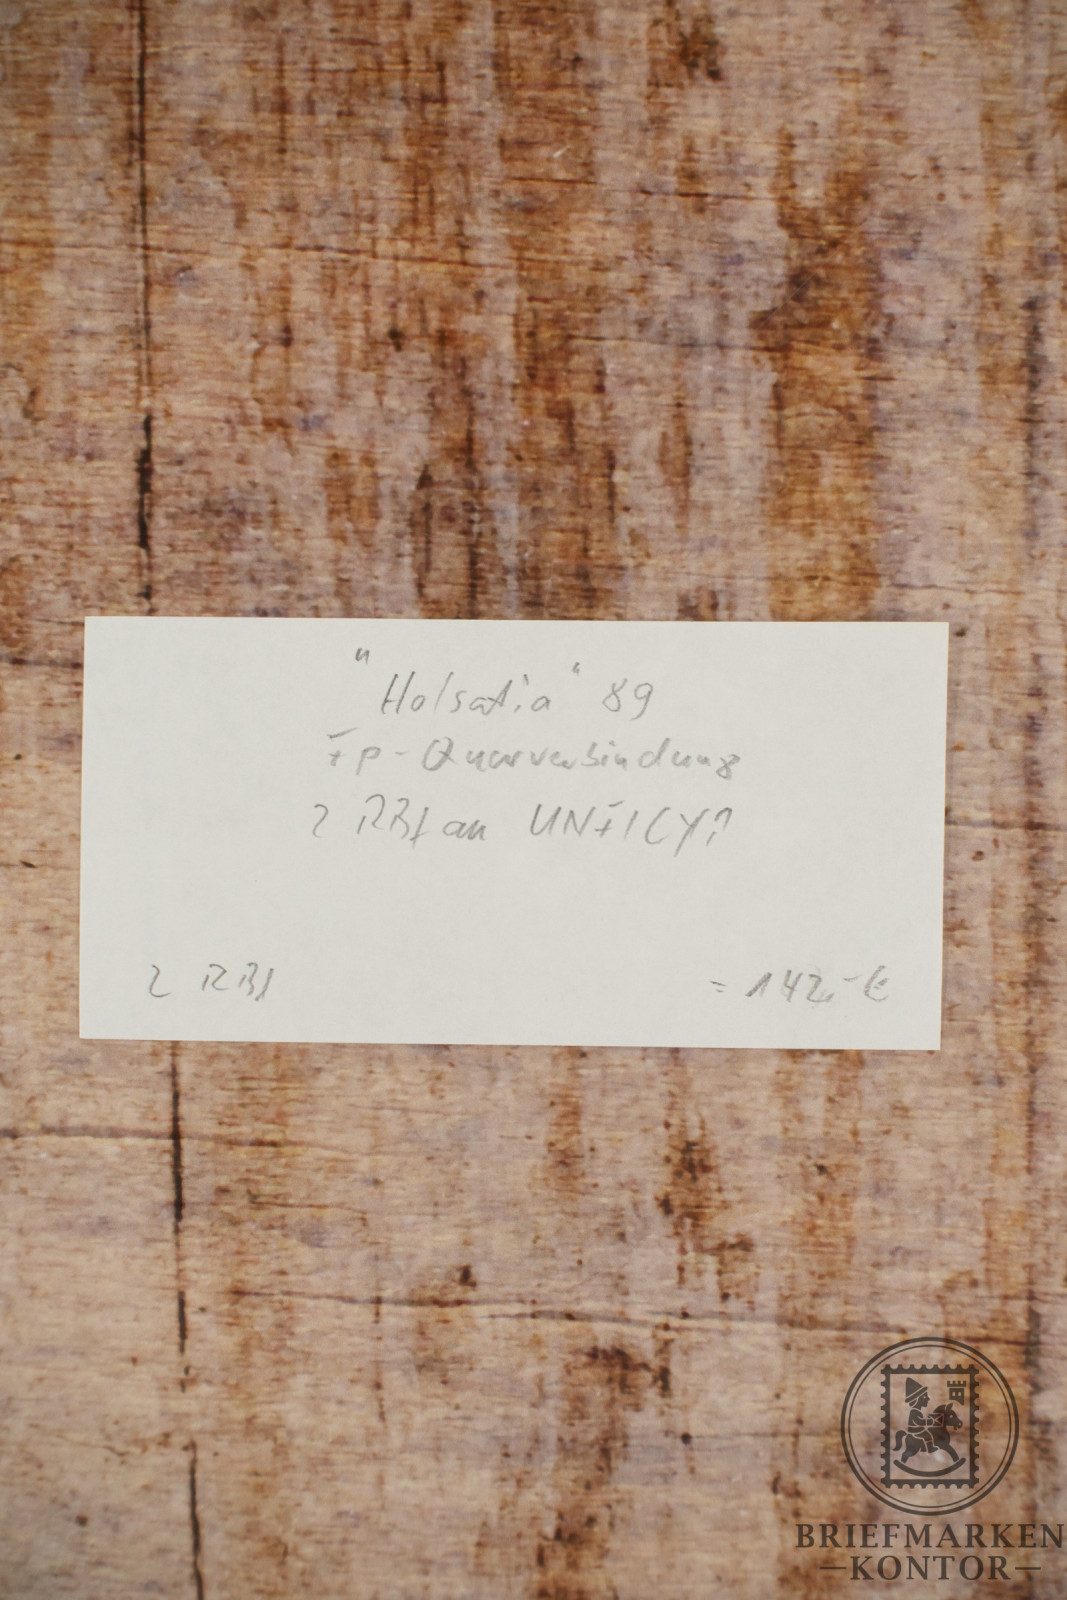 "Holsatia" 89
Fp-Querverbindung
2 RBf an UNFICYP
2 RBf
= 142,- €
BRIEFMARKEN
KONTOR